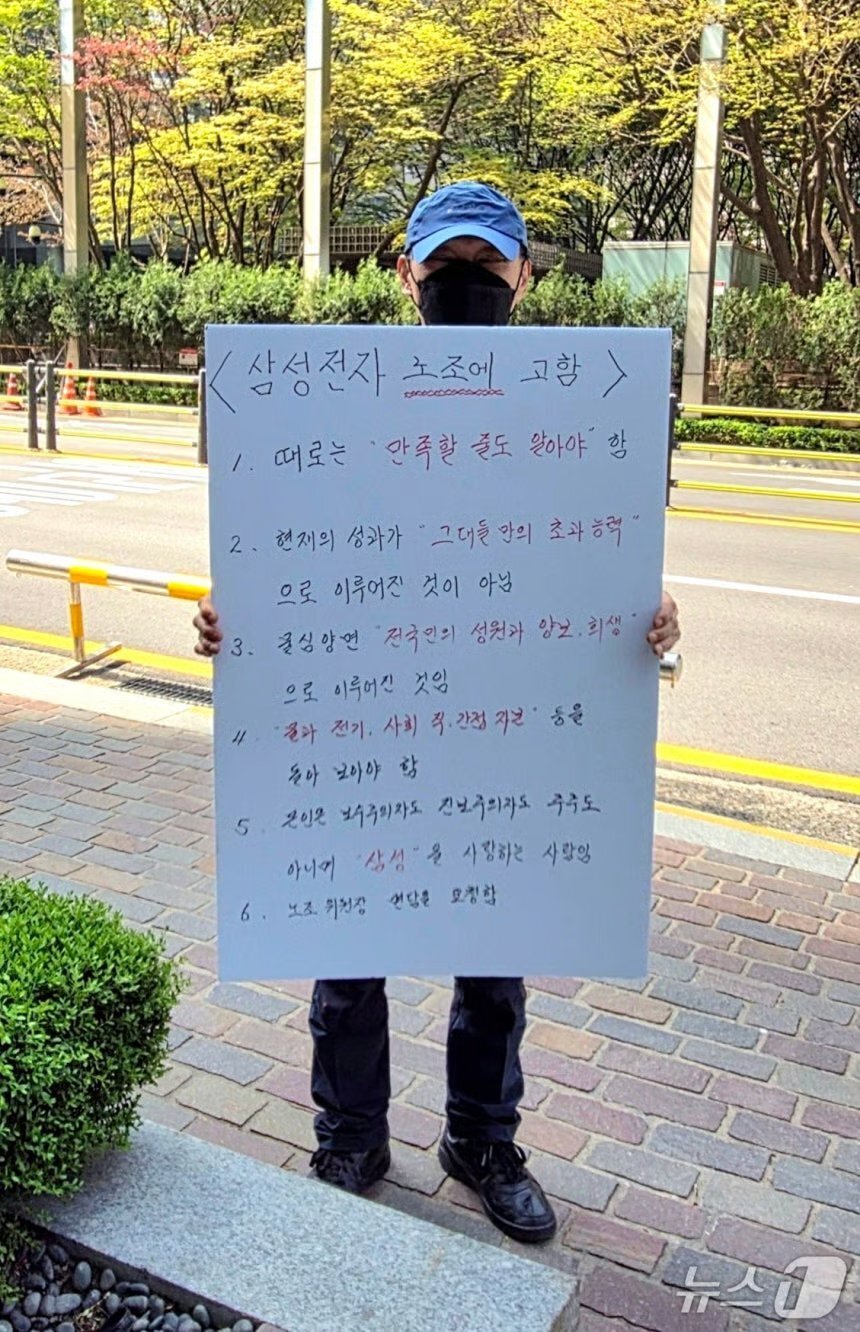 <삼성전자 노조에 고함>
1. 때로는 "만족할 줄도 알아야" 함
2. 현재의 성과가 "그대들만의 초과능력"
으로 이루어진 것이 아님
3. 물심양면 "전국민의 성원과 양보, 희생"
으로 이루어진 것임
4. "물과 전기, 사회 직·간접 자본" 등을
돌아 보아야 함
5. 본인은 보수주의자도 진보주의자도 주주도
아니며 "삼성"을 사랑하는 사람임
6. 노조 위원장 면담을 요청함
뉴스1